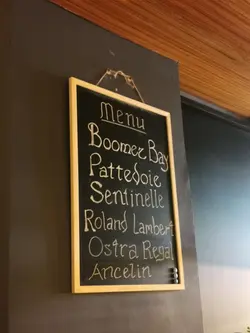 Menu
Boomer Bay
Pattedoie
Sentinelle
Roland Lambert
Ostra Regal
Ancelin